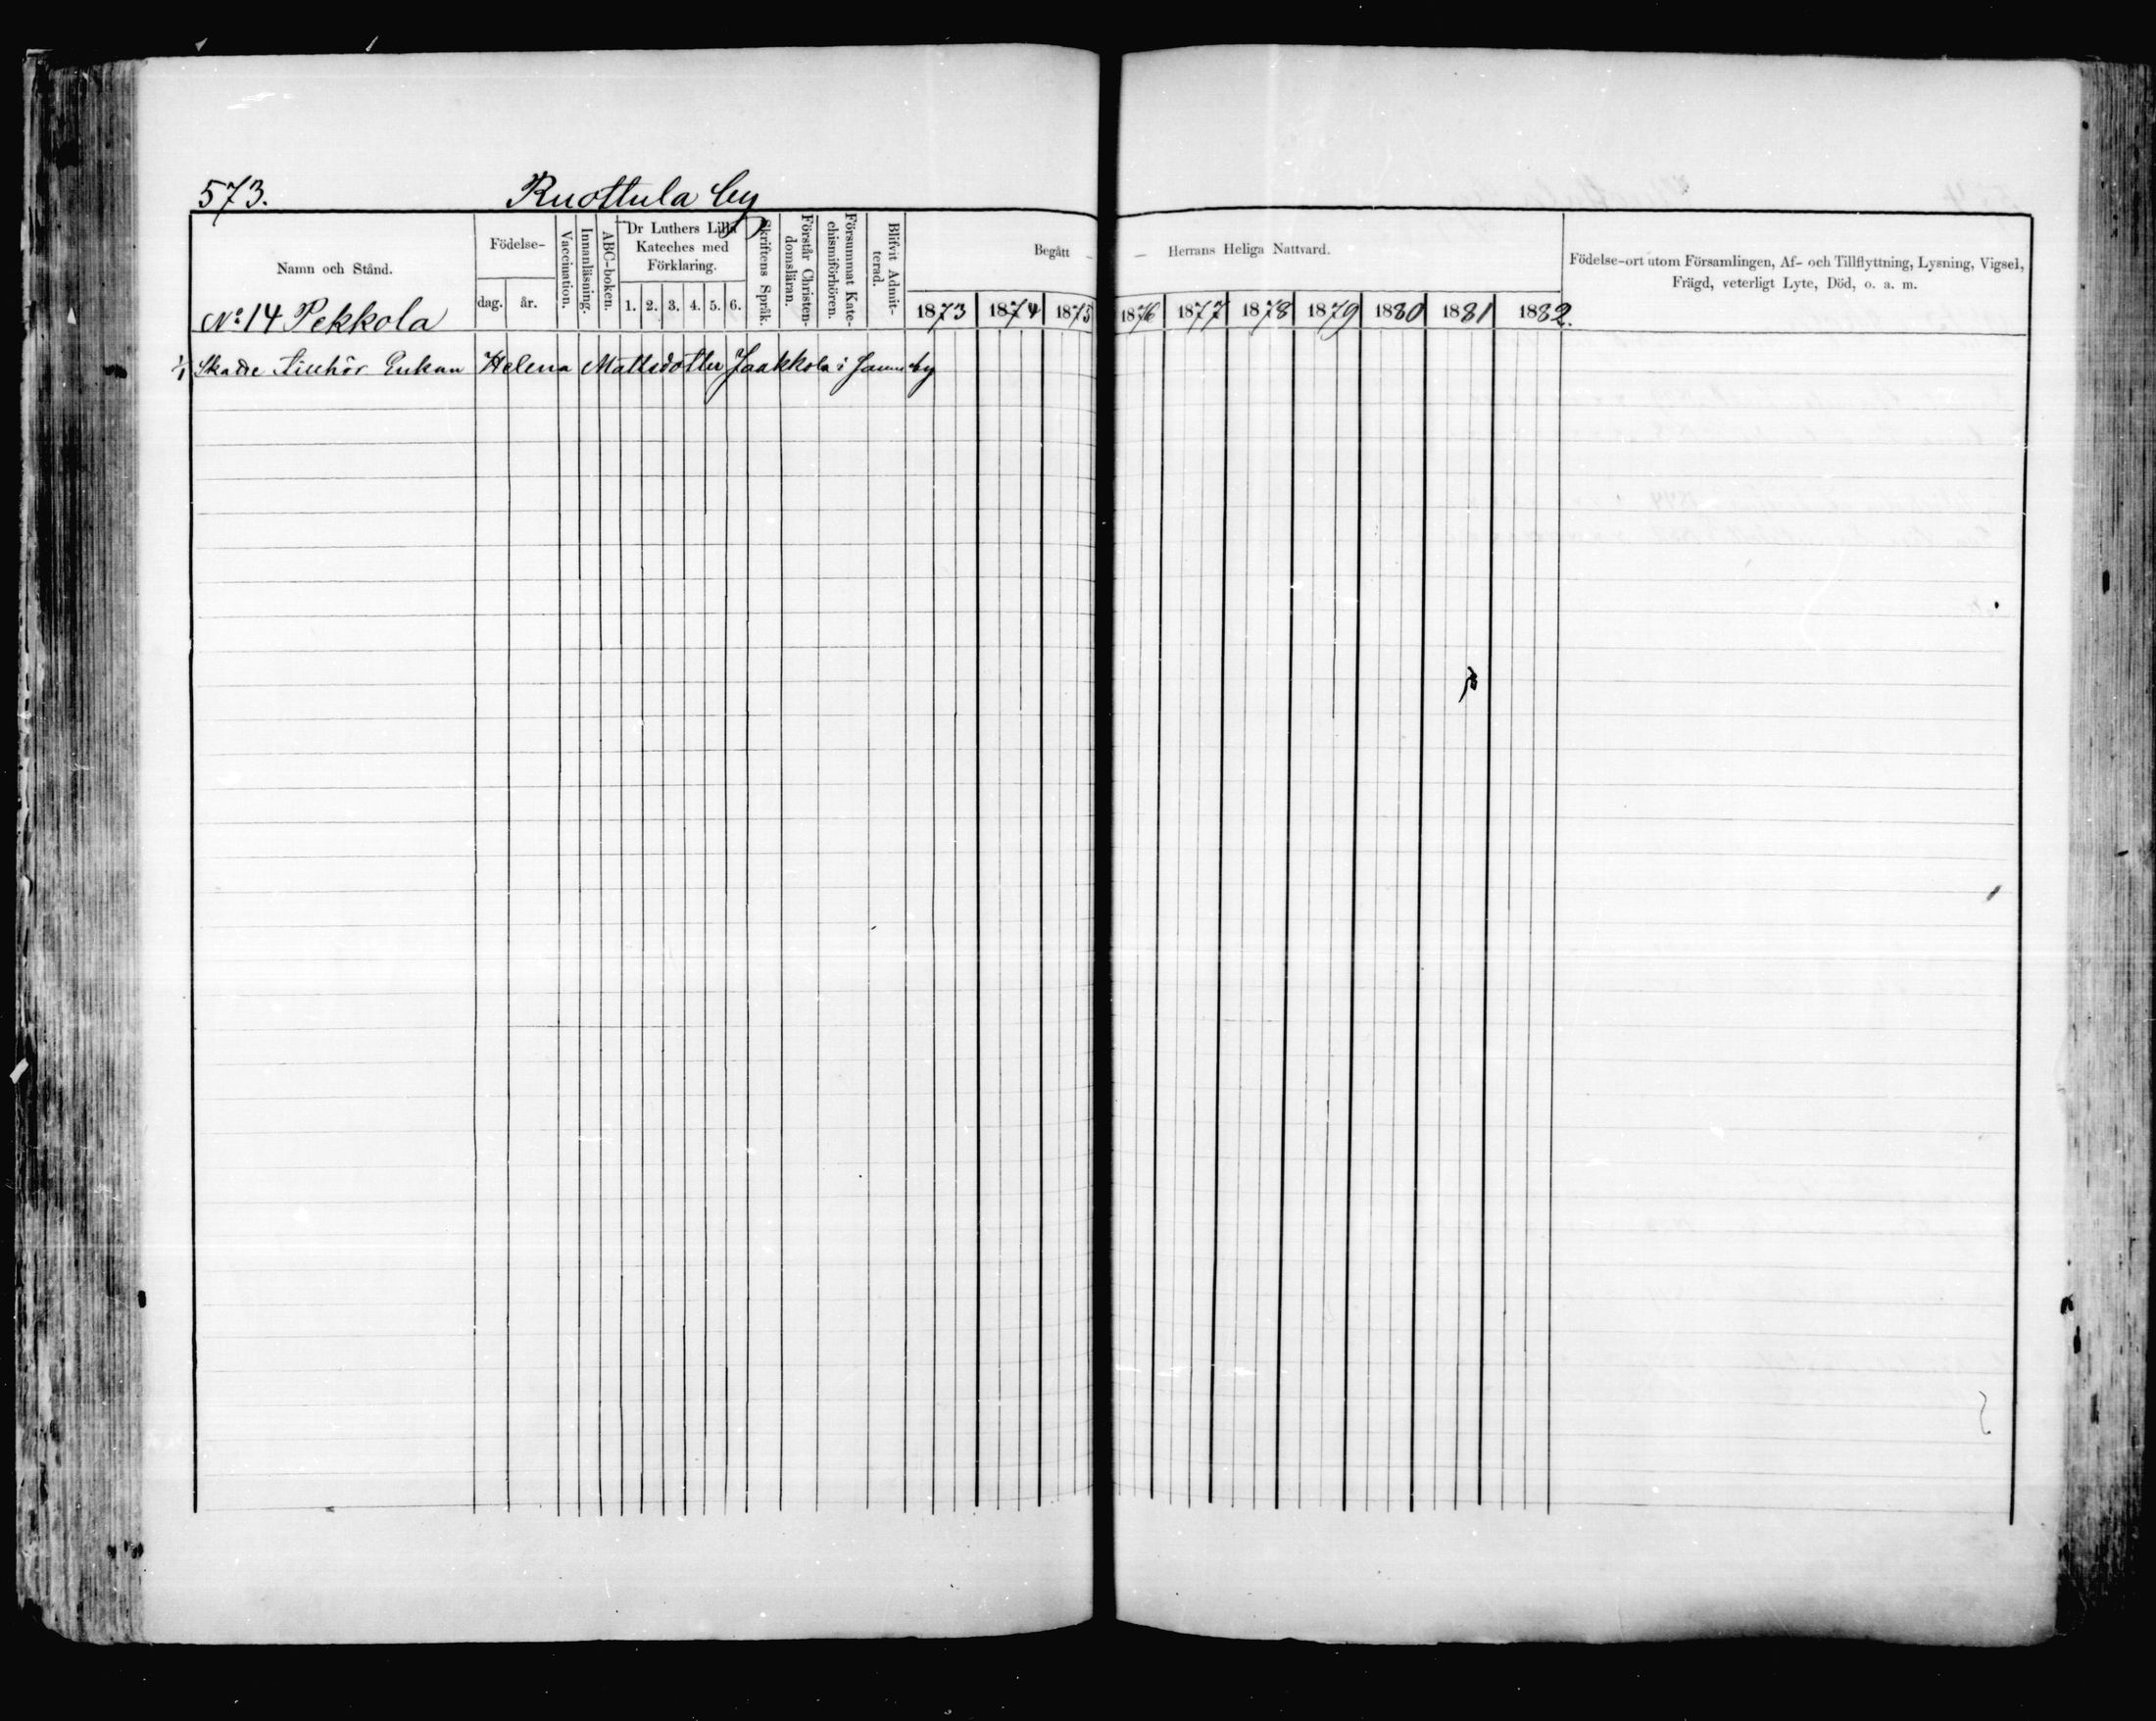 573. Ruottula by
Namn och Stånd.
Födelse-
dag. år.
Vaccination.
Innanläsning.
ABC-boken.
Dr Luthers Lilla
Kateches med
Förklaring.
1. 2. 3. 4. 5. 6.
Skriftens Språk.
Förstår Christen-
domsläran.
Försummat Kate-
chismiförhören.
Blifvit Admit-
terad.
Begått - - Herrans Heliga Nattvard.
1873 1874 1875 1876 1877 1878 1879 1880 1881 1882.
Födelse-ort utom Församlingen, Af- och Tillflyttning, Lysning, Vigsel,
Frägd, veterligt Lyte, Död, o. a. m.
No 14 Pekkola
1/1 Skatte Tillhör Enkan Helena Mattsdotter Jaakkola i samma by